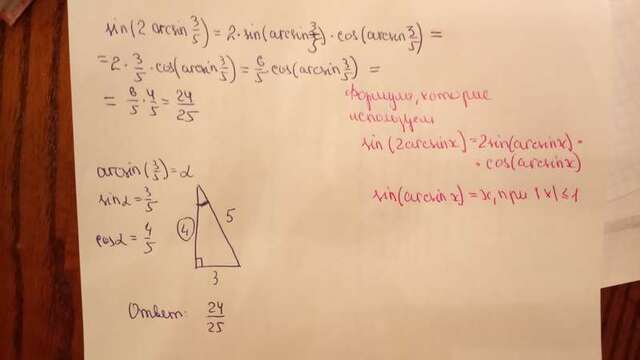 sin(2 arcsin 3/5) = 2·sin(arcsin 3/5)·cos(arcsin 3/5) =
= 2·3/5·cos(arcsin 3/5) = 6/5·cos(arcsin 3/5) =
= 6/5·4/5 = 24/25
arcsin(3/5) = α
sinα = 3/5
cosα = 4/5
4
5
3
Ответ: 24/25
Формулы, которые
используем
sin(2arcsinx) = 2sin(arcsinx)·
·cos(arcsinx)
sin(arcsinx) = x, при |x| ≤ 1